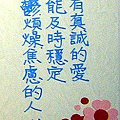 有真誠的愛
能及時穩定
鬱煩燥焦慮的人